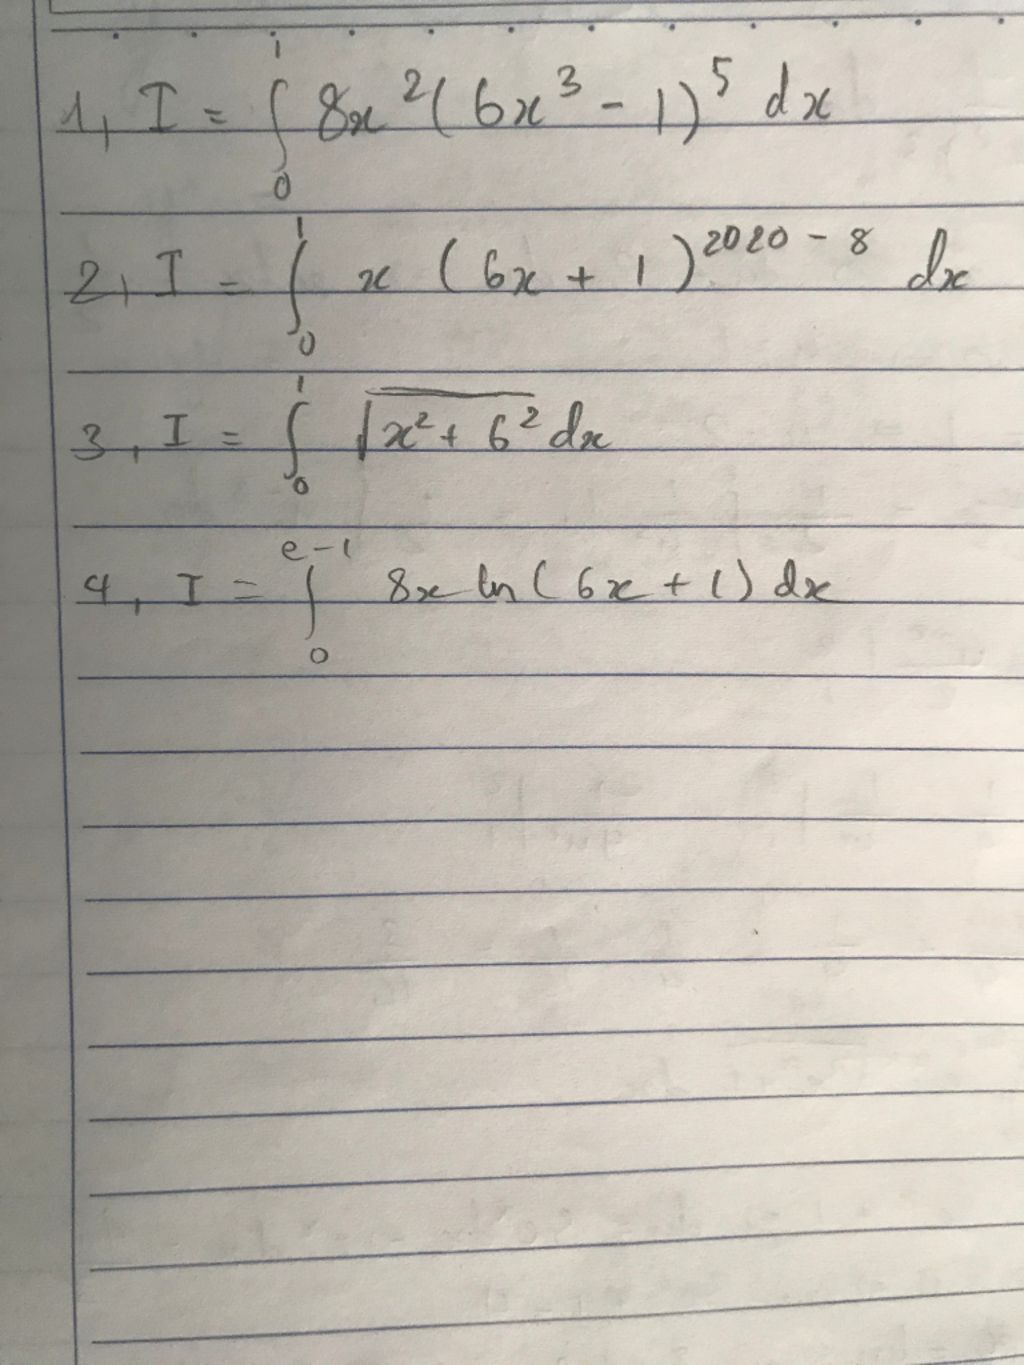 1, I = ∫₀¹ 8x²(6x³ - 1)⁵ dx
2, I = ∫₀¹ x (6x + 1)²⁰²⁰⁻⁸ dx
3, I = ∫₀¹ √(x² + 6²) dx
4, I = ∫₀^(e-1) 8x ln(6x + 1) dx